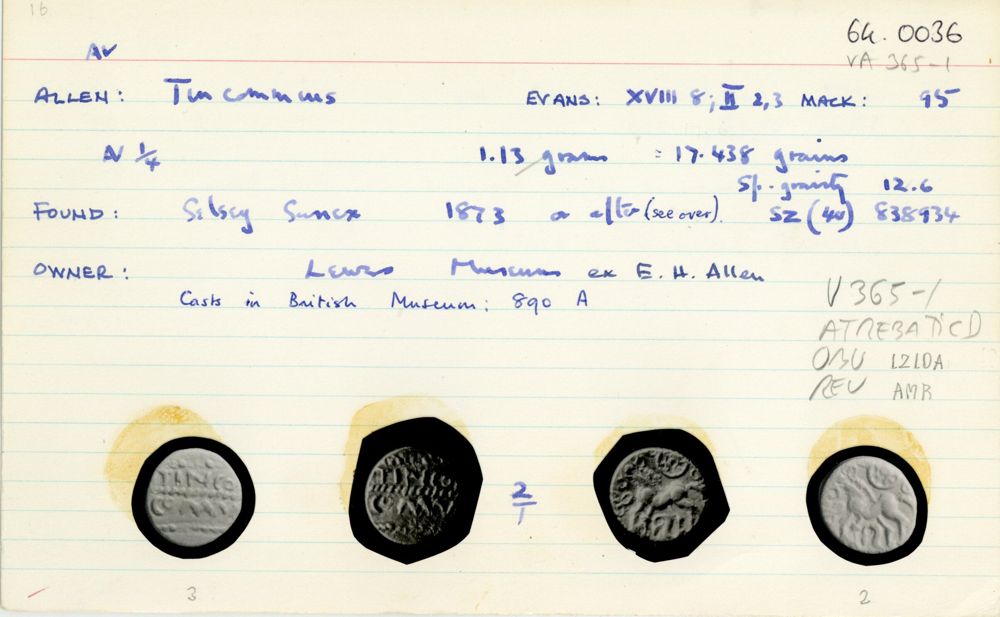 16
AV
64.0036
VA 365-1
ALLEN: Tincommius EVANS: XVIII 8; II 2,3 MACK: 95
AV 1/4 1.13 grams = 17.438 grains
Sp. gravity 12.6
FOUND: Selsey Sussex 1873 or after (see over). SZ (40) 838934
OWNER: Lewes Museum ex E. H. Allen
Casts in British Museum: 890 A
V 365-1
ATREBATIC D
OBV 121DA
REV AMR
TINCO
2/1
3
2